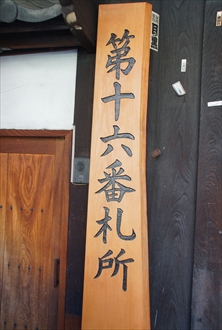 第十六番札所